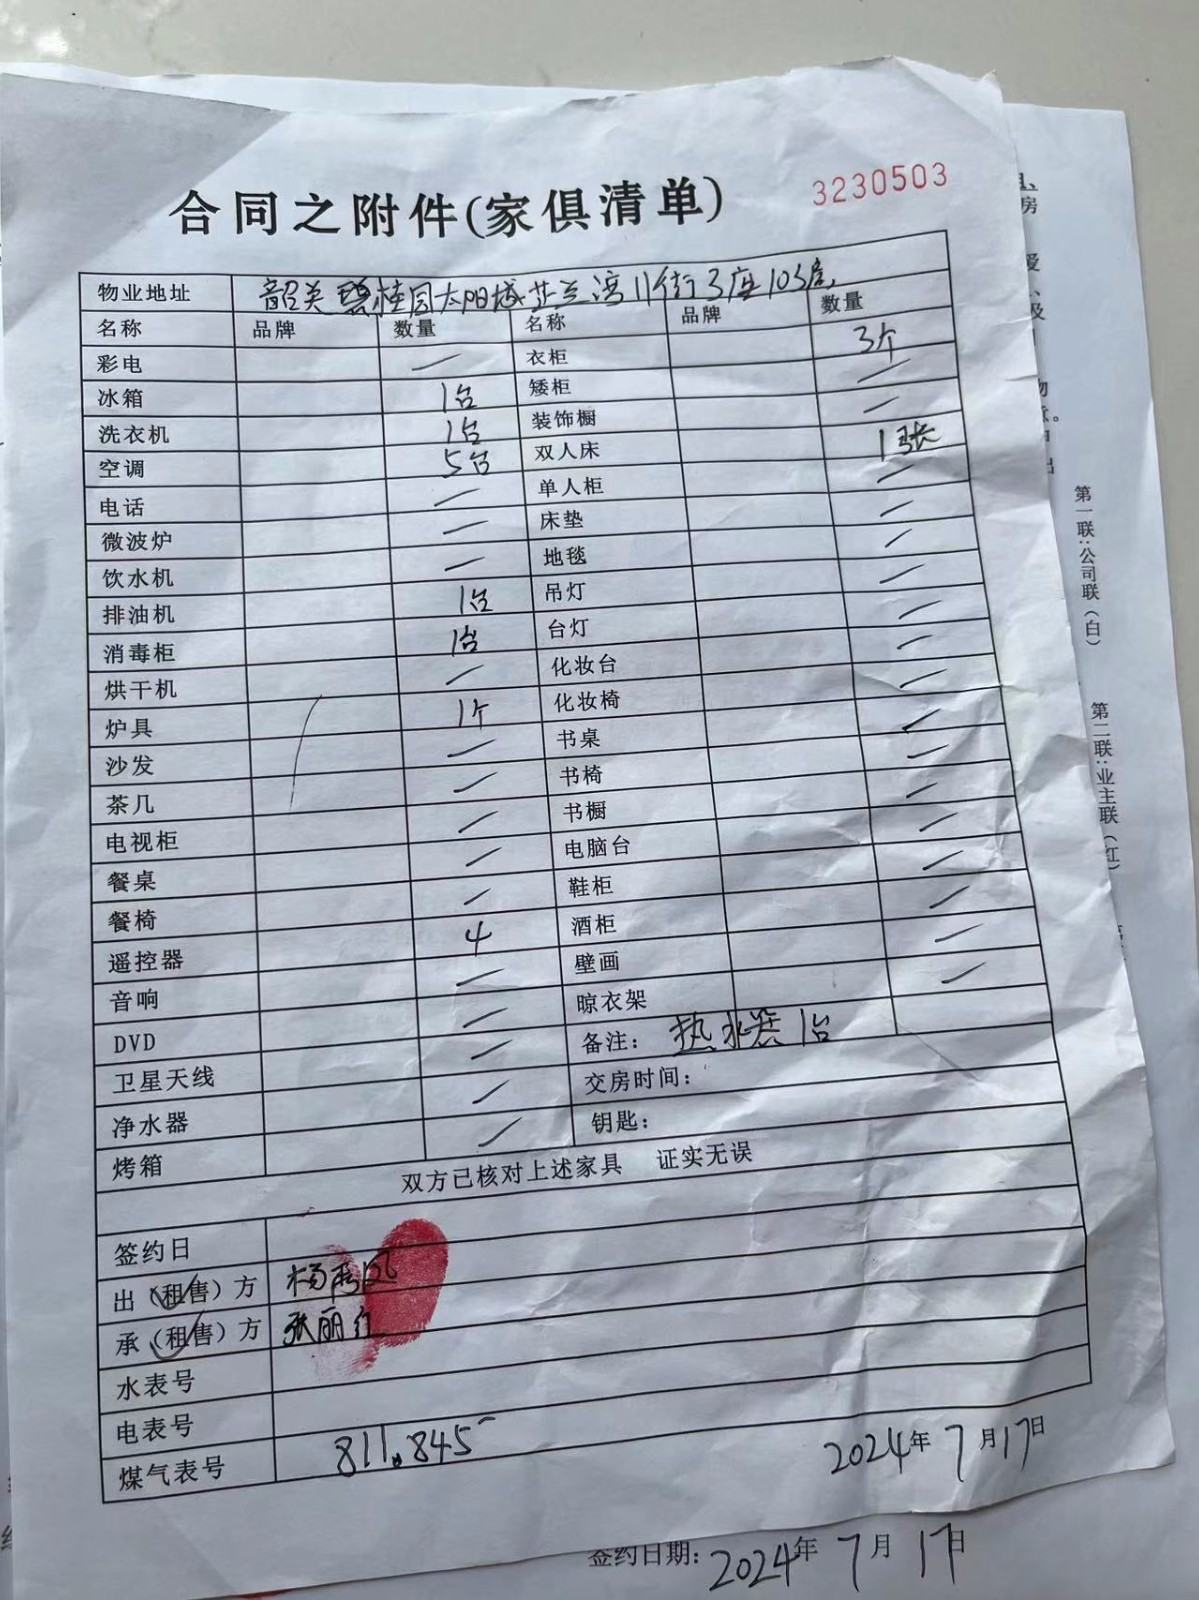 合同之附件(家俱清单) 3230503
物业地址 韶关碧桂园太阳城芷兰湾11街3座103房
名称 品牌 数量 名称 品牌 数量
彩电 — 衣柜 3个
冰箱 1台 矮柜 —
洗衣机 1台 装饰橱 —
空调 5台 双人床 1张
电话 — 单人柜 —
微波炉 — 床垫 —
饮水机 — 地毯 —
排油机 1台 吊灯 —
消毒柜 1台 台灯 —
烘干机 — 化妆台 —
炉具 1个 化妆椅 —
沙发 — 书桌 —
茶几 — 书椅 —
电视柜 — 书橱 —
餐桌 — 电脑台 —
餐椅 — 鞋柜 —
遥控器 4 酒柜 —
音响 — 壁画 —
DVD — 晾衣架 —
卫星天线 — 备注: 热水器1台
净水器 — 交房时间:
烤箱 — 钥匙:
双方已核对上述家具 证实无误
签约日
出(租售)方 杨秀凤
承(租售)方 张丽红
水表号
电表号
煤气表号 811.845
2024年7月17日
签约日期: 2024年7月17日
第一联:公司联(白)
第二联:业主联(红)